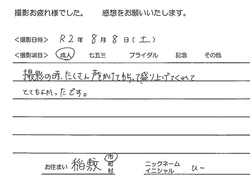 撮影お疲れ様でした。 感想をお願いいたします。
<撮影日時> R2年 8月 8日(土)
<撮影項目> 成人 七五三 ブライダル 記念 その他
撮影の時、たくさん声をかけてもらって盛り上げてくれて
とてもよかったです。
お住まい 稲敷 市町村 ニックネーム イニシャル ひー